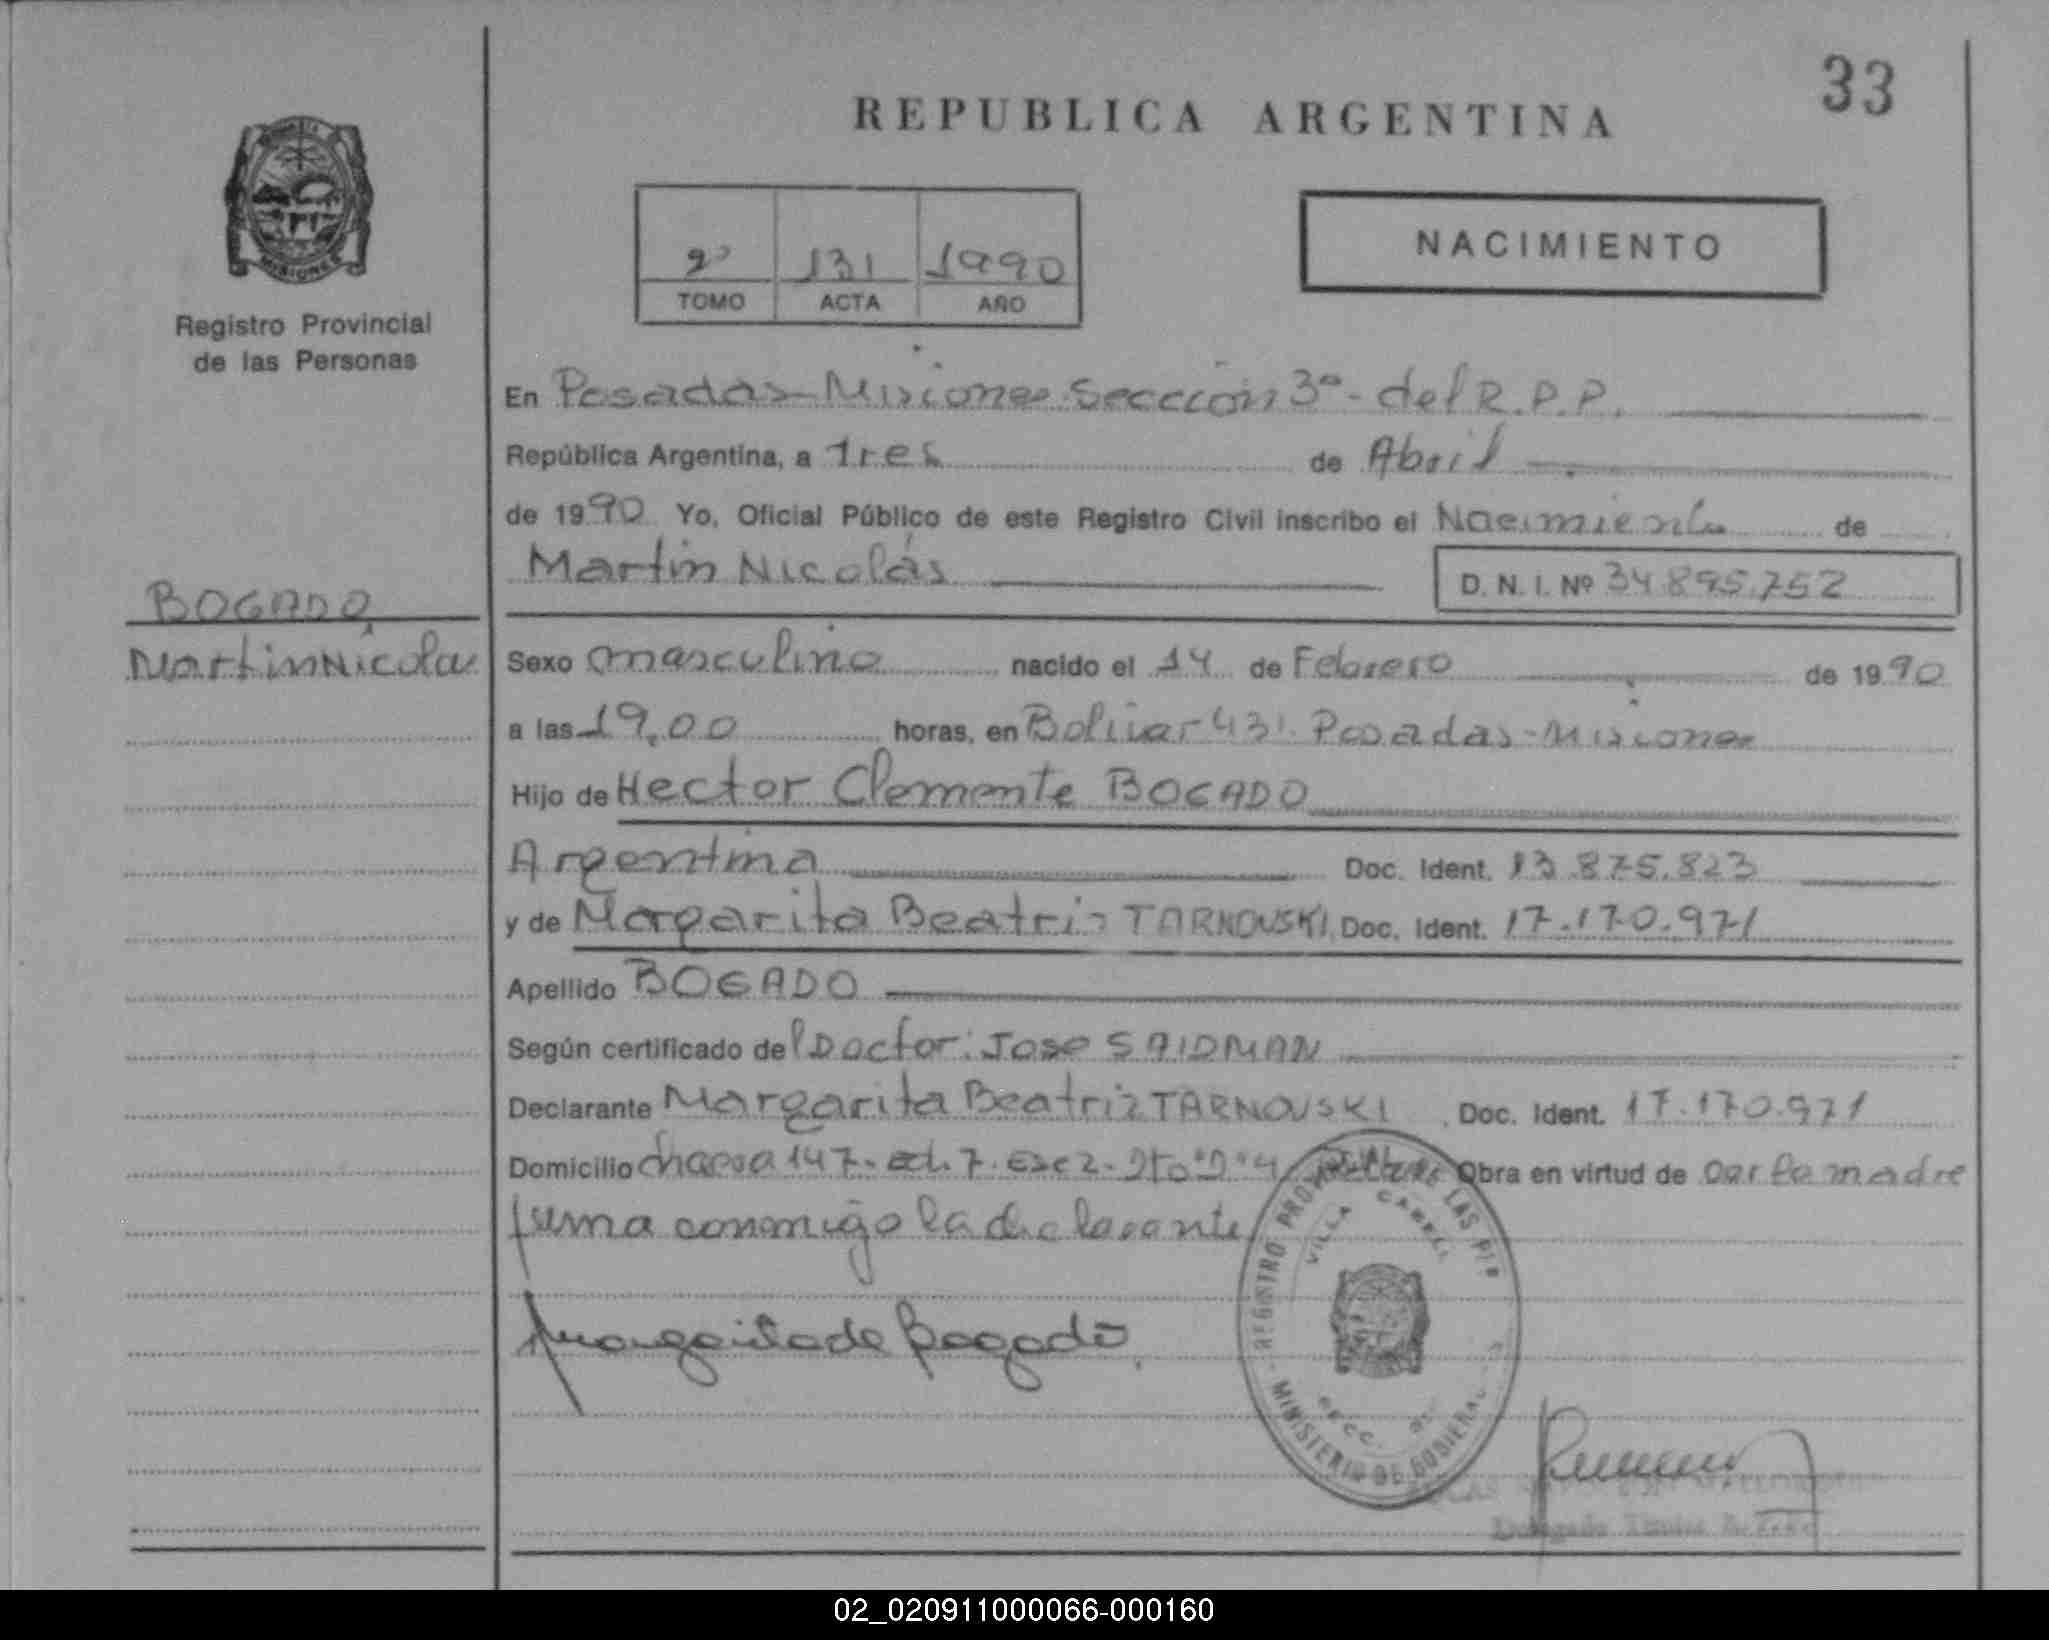 33
REPUBLICA ARGENTINA
MISIONES
Registro Provincial
de las Personas
2º 131 1990
TOMO ACTA AÑO
NACIMIENTO
En Posadas-Misiones Sección 3ª- del R.P.P.
República Argentina, a tres de Abril
de 1990 Yo, Oficial Público de este Registro Civil inscribo el Nacimiento de
Martín Nicolás
D. N. I. Nº 34.895.752
BOGADO,
Martín Nicolás
Sexo masculino nacido el 14 de Febrero de 1990
a las 19,00 horas, en Bolivar 431. Posadas-Misiones
Hijo de Hector Clemente BOGADO
Argentina Doc. Ident. 13.875.823
y de Margarita Beatriz TARNOVSKI Doc. Ident. 17.170.971
Apellido BOGADO
Según certificado del Doctor: Jose SAIDMAN
Declarante Margarita Beatriz TARNOVSKI Doc. Ident. 17.170.971
Domicilio chacra 147- ed. 7. Esc 2- Dto "D" 4 Obra en virtud de ser la madre
firma conmigo la declarante
Margarita de Bogado
REGISTRO PROVINCIAL DE LAS
VILLA CABELL
SECC.
MINISTERIO DE GOBIERNO
Delegado Titular
02_020911000066-000160